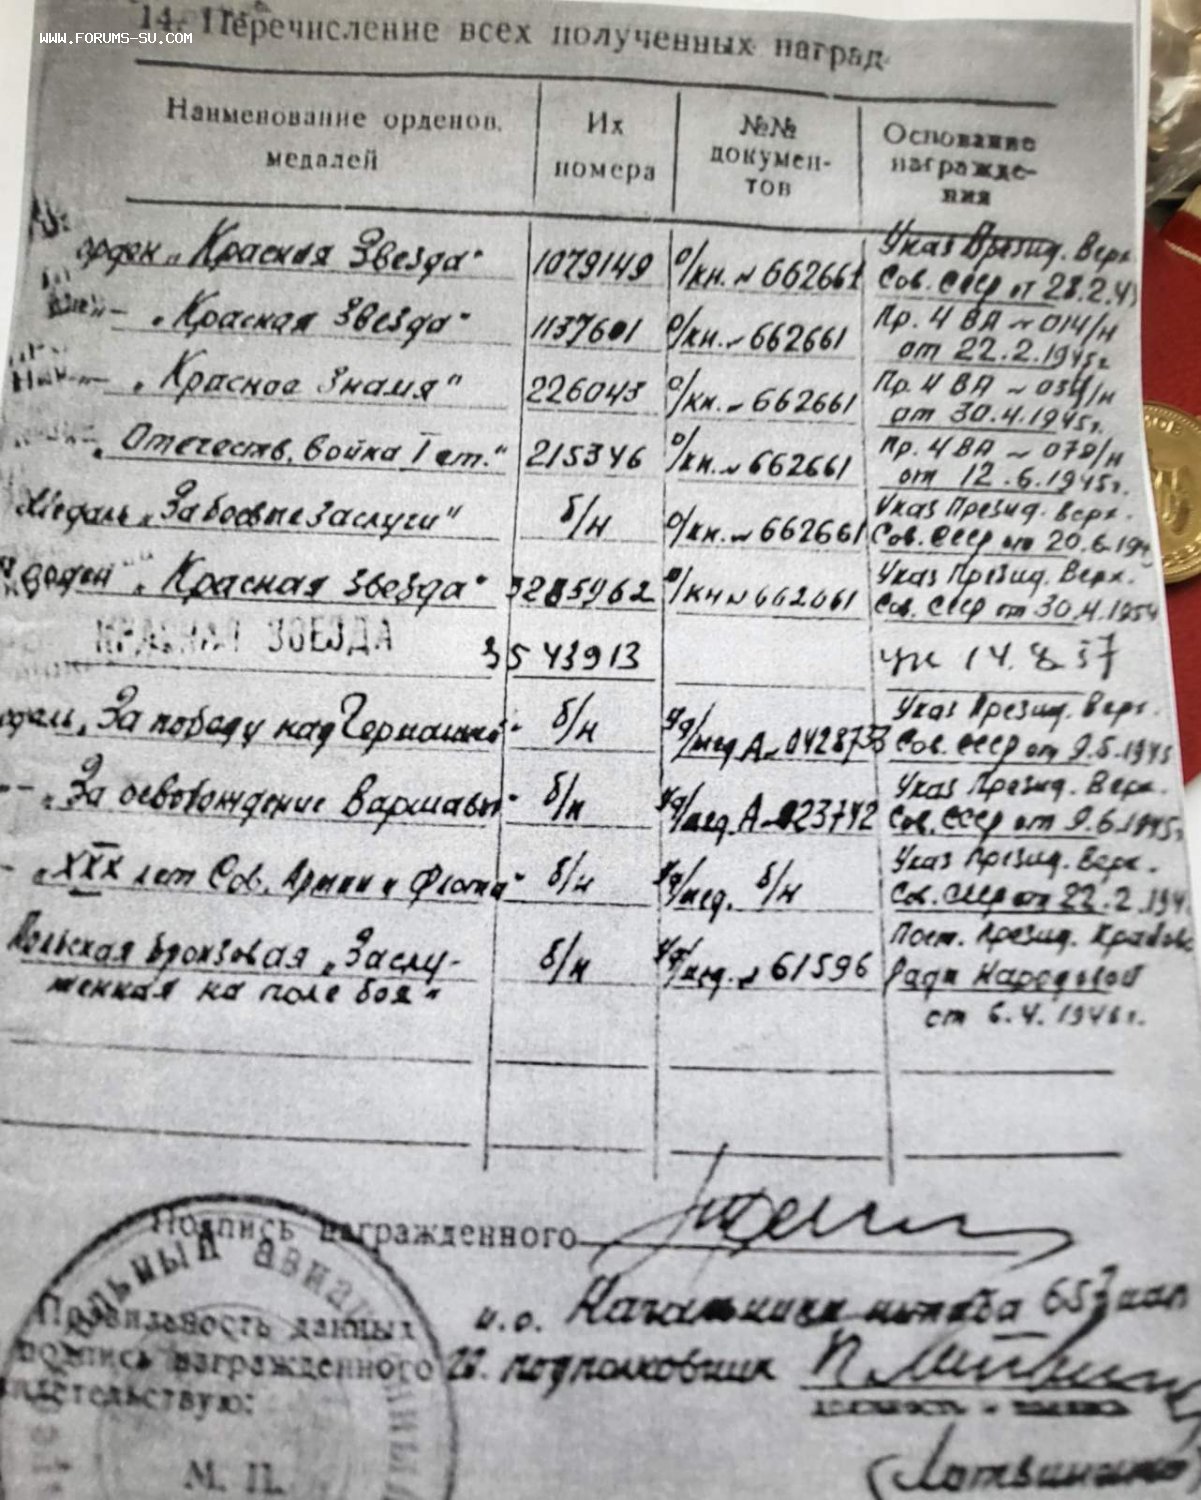 www.FORUMS-SU.COM
14. Перечисление всех полученных наград
Наименование орденов, медалей
Их номера
№№ документов
Основание награждения
орден „Красная Звезда" 1079149 о/кн. № 662661 Указ Презид. Верх. Сов. СССР от 28.2.4
—„— „Красная Звезда" 1137601 о/кн. № 662661 Пр. 4 ВА № 014/н от 22.2.1945г
—„— „Красное Знамя" 226043 о/кн. № 662661 Пр. 4 ВА № 054/н от 30.4.1945г.
„Отечеств. Война I ст." 215346 о/кн. № 662661 Пр. 4 ВА № 078/н от 12.6.1945г.
Медаль „За боевые заслуги" б/н о/кн. № 662661 Указ Презид. Верх. Сов. СССР от 20.6.194
орден „Красная Звезда" 3285962 о/кн № 662661 Указ Презид. Верх. Сов. СССР от 30.4.1954
КРАСНАЯ ЗВЕЗДА 3543913 ук 14.8 57
едаль „За победу над Германией" б/н уд/мед А № 0428733 Указ Презид. Верх. Сов. СССР от 9.5.1945
—„— „За освобождение Варшавы" б/н уд/мед. А № 023742 Указ Презид. Верх. Сов. СССР от 9.6.1945г
— „XXX лет Сов. Армии и Флота" б/н уд/мед. б/н Указ Презид. Верх. Сов. СССР от 22.2.194
Польская бронзовая „Заслуженная на поле боя" б/н уд/мед. № 61596 Пост. Презид. Крайовой Рады Народовой от 6.4.1946г.
Подпись награжденного
и.о. Начальника штаба 653 иап
Правильность данных
подпись награжденного
гв. подполковник
идетельствую:
должность - звание
М. П.